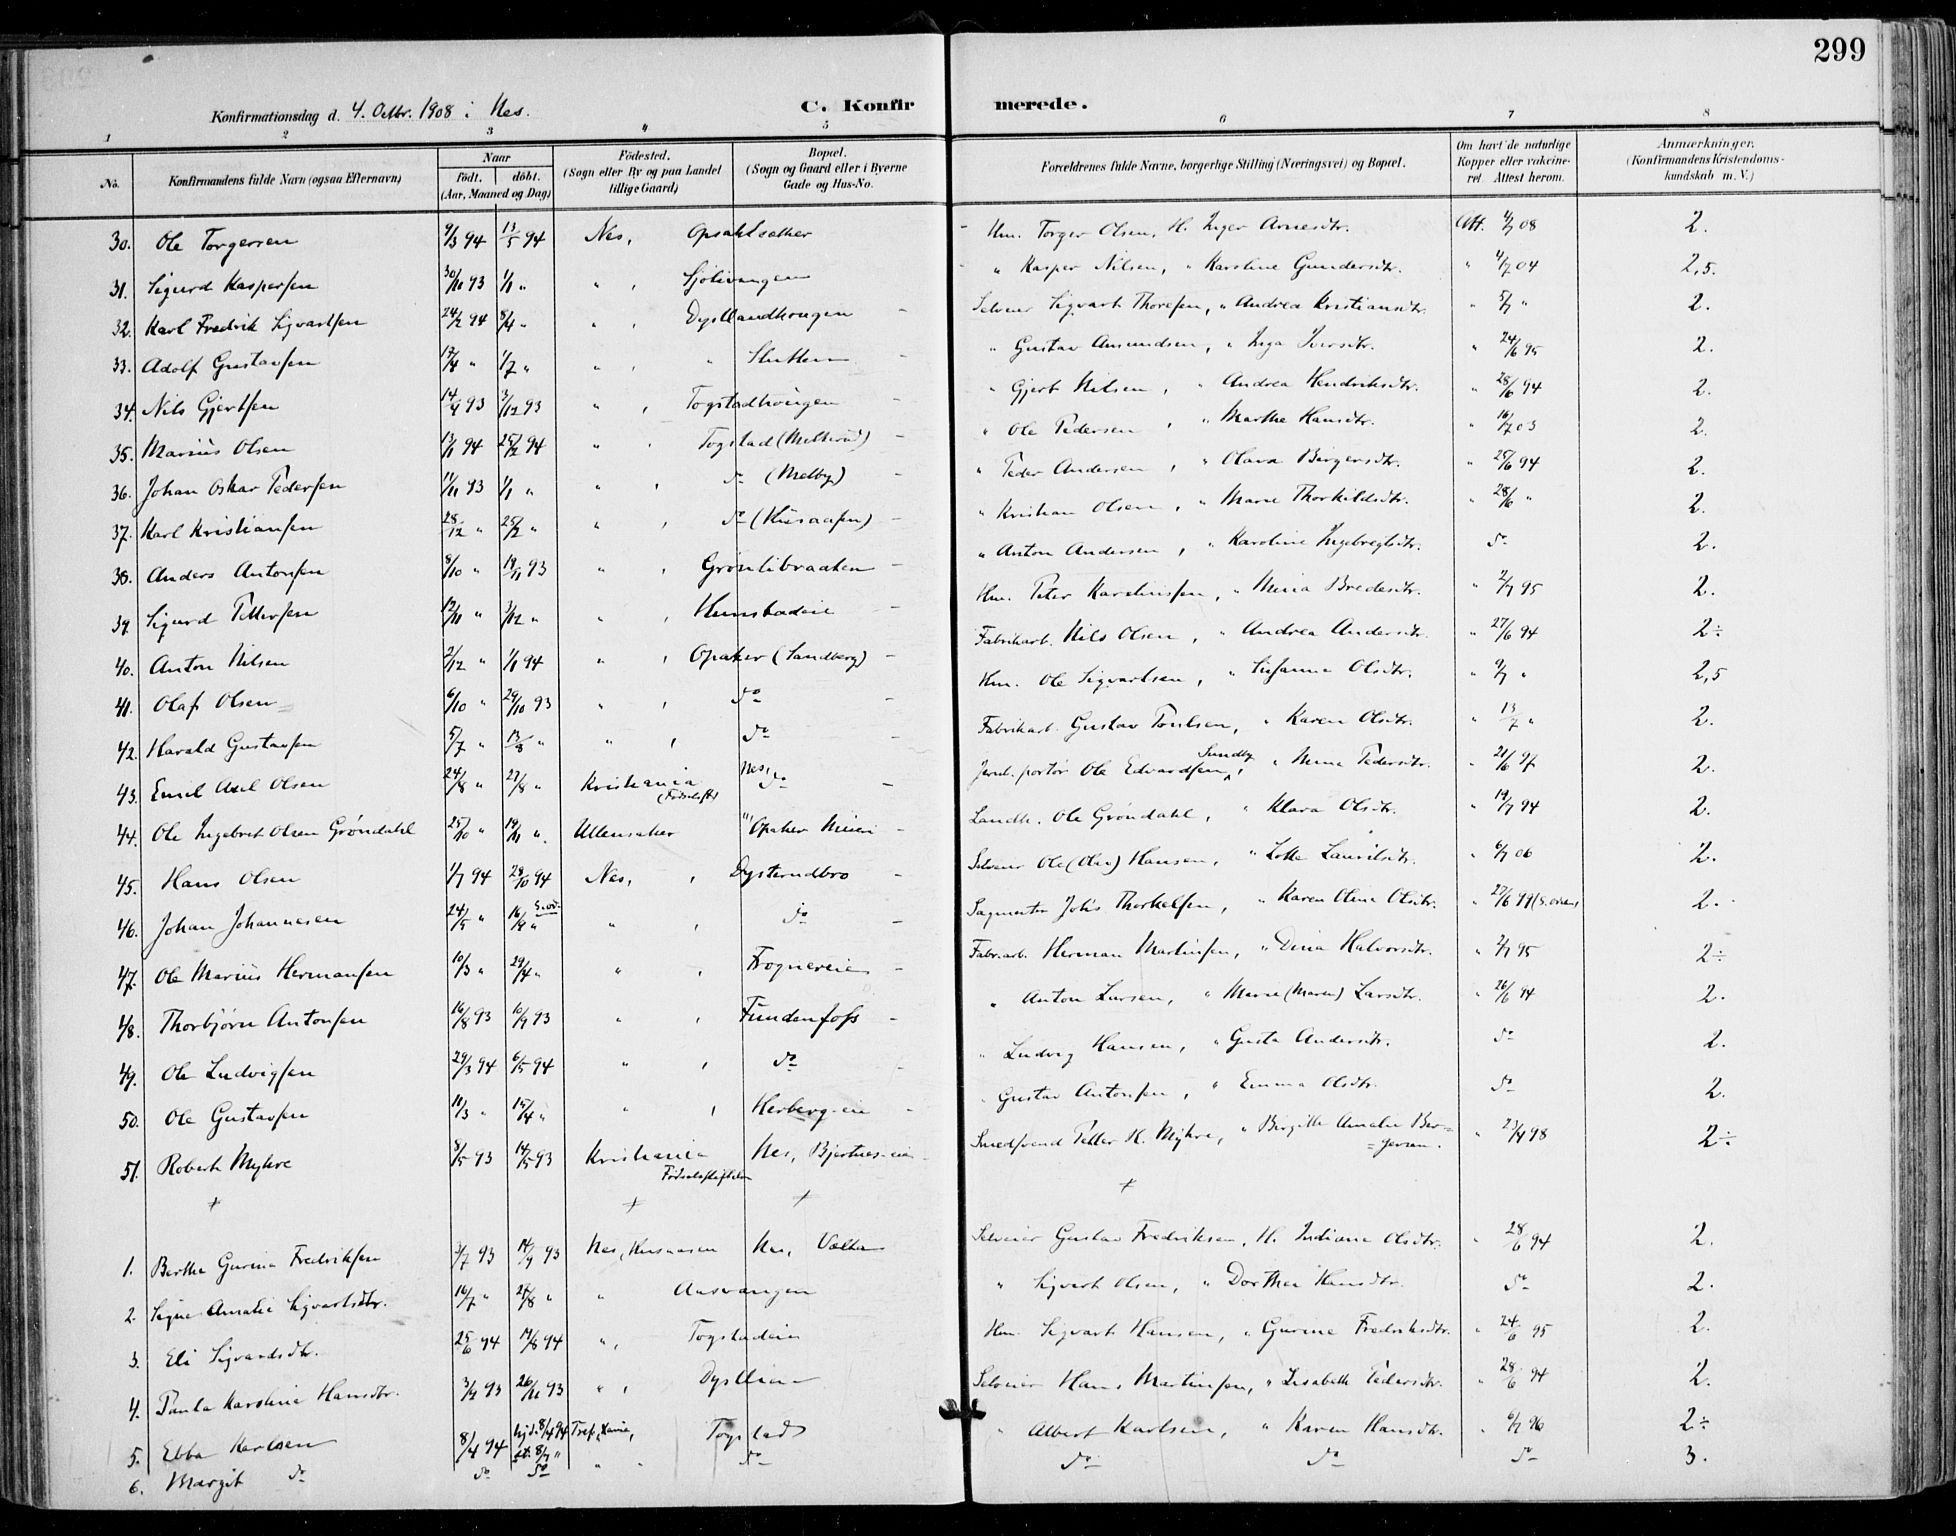 299
Konfirmationsdag d. 4. Octbr. 1908 i Nes. C. Konfirmerede.
1 2 3 4 5 6 7 8
No. Konfirmandens fulde Navn (ogsaa Efternavn) Naar født. døbt. (Aar, Maaned og Dag) Fødested. (Sogn eller By og paa Landet tillige Gaard) Bopæl. (Sogn og Gaard eller i Byerne Gade og Hus-No. Forældrenes fulde Navne, borgerlige Stilling (Næringsvei) og Bopæl. Om havt de naturlige Kopper eller vakcineret Attest herom. Anmærkninger. (Konfirmandens Kristendomskundskab m. V.)
30. Ole Torgersen 9/3 94 13/5 94 Nes, Opsahlsæther Hm. Torger Olsen, H. Inger Arnesdtr. Att. 4/7 08 2.
31. Sigurd Kaspersen 30/11 93 1/1 " " , Sjölivangen " Kasper Nilsen, " Karoline Gundersdtr. " 4/7 04 2,5.
32. Karl Fredrik Sigvartsen 24/2 94 8/4 " " , Dysllandhougen Selveier Sigvart Thoresen, " Andrea Kristiansdtr. " 5/7 " 2.
33. Adolf Gustavsen 17/4 " 1/7 " " , " " Gustav Amundsen, " Inga Iversdtr. " 24/6 95 2.
34. Nils Gjertsen 14/9 93 3/12 93 " , Togstadhougen " Gjert Nilsen, " Andrea Hendriksdtr. " 28/6 94 2.
35. Marius Olsen 13/1 94 25/2 94 " , Togstad (Melterud) " Ole Pedersen, " Marthe Hansdtr. " 16/7 03 2.
36. Johan Oskar Pedersen 11/11 93 1/1 " " , do (Melby) " Peder Andersen, " Olava Birgersdtr. " 25/6 94 2.
37. Karl Kristiansen 28/12 " 25/2 " " , do (Husaasen) " Kristian Olsen, " Marie Thorkildsdtr. " 28/6 " 2.
38. Anders Antonsen 8/10 " 19/11 93 " , Grönlibraaten " Anton Andersen, " Karoline Ingebregtsdtr. do 2.
39. Sigurd Pettersen 12/11 " 3/12 " " , Hunstadeie Hm. Peter Karelinisen, " Mina Bredesdtr. " 2/7 95 2.
40. Anton Nilsen 2/12 " 1/1 94 " , Opaker (Sandberg) Fabrikarb. Nils Olsen, " Andrea Andersdtr. " 27/6 94 2÷
41. Olaf Olsen 6/10 " 29/10 93 " , do Hm. Ole Sigvartsen, " Susanna Olsdtr. " 9/7 " 2,5
42. Harald Gustavsen 5/7 " 13/8 " " , do Fabrikarb. Gustav Poulsen, " Karen Olsdtr. " 13/7 " 2.
43. Emil Axel Olsen 24/8 " 27/8 " Kristiania (Fødselsst) Nes, do Jernb. portör Ole Edvardsen Sundby, " Mina Pedersdtr. " 21/6 97 2.
44. Ole Ingebret Olsen Gröndahl 25/10 " 19/11 " Ullensaker " Opaker Landh. Ole Gröndahl, " Klara Olsdtr. " 19/7 94 2.
45. Hans Olsen 1/7 94 28/10 94 Nes, , Dysterudbro Selveier Ole (Olav) Hansen, " Lotte Lauritsdtr. " 6/7 06 2.
46. Johan Johannesen 24/5 " 16/9 " " , do Sagmester Johs Thorkelsen, " Karen Oline Olsdtr. " 27/6 99 2.
47. Ole Marius Hermansen 10/3 " 29/4 " " , Frognereie Fabr.arb. Herman Martinsen, " Dina Halvorsdtr. " 2/7 95 2÷
48. Thorbjörn Antonsen 16/8 93 10/9 93 " , Fundenfoss " Anton Larsen, " Marie (Maren) Larsdtr. " 26/6 94 2.
49. Ole Ludvigsen 29/3 94 6/5 94 " , do " Ludvig Hansen, " Gusta Andersdtr. do 2.
50. Ole Gustavsen 11/3 " 15/4 " " , Herberg-eie " Gustav Antonsen, " Emma Olsdtr. do 2.
51. Robert Myhre 8/5 93 14/5 93 Kristiania Fødselsstiftelsen Nes, Bjertnes-eie Smedsvend Petter H. Myhre, " Birgitte Amalie Bergersen. " 23/4 98 2÷
1. Berthe Gurine Fredriksen 3/7 93 14/9 93 Nes, Husaasen Nes, Selveier Gustav Fredriksen, H. Indiana Olsdtr. " 28/6 94 2.
2. Signe Amalie Sigvartsdtr. 16/7 " 27/8 " " Aasvangen " Sigvart Olsen, " Dorthea Hansdtr. do 2.
3. Eli Sigvardsdtr. 25/6 94 19/8 94 " , Togstadeie Hm. Sigvart Hansen, " Gurine Fredriksdtr. " 24/6 95 2.
4. Paula Karoline Hansdtr. 3/9 93 26/11 93 " , Dysllien Selveier Hans Martinsen, " Lisabeth Pedersdtr. " 28/6 94 2.
5. Ebba Karlsen 8/4 94 hjd. 8/4 94 st. 8/7 " Togstad " Albert Karlsen, " Karen Hansdtr. " 6/7 96 2÷
6. Margit do do do " " do do do do 3.